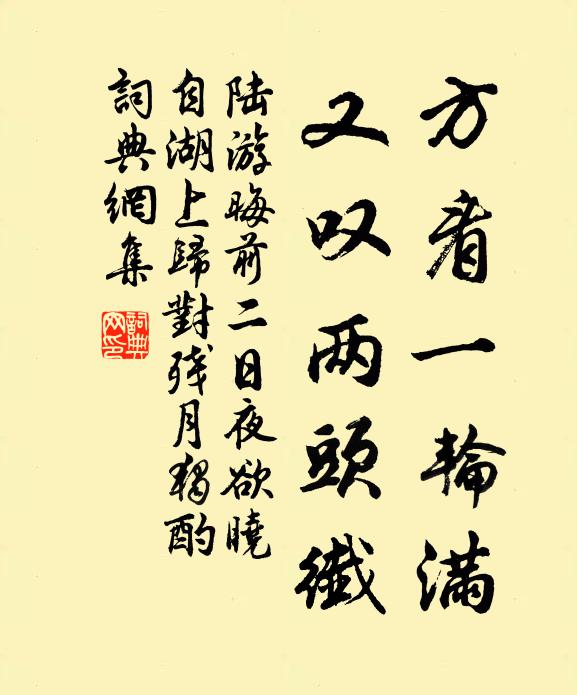 方看一輪滿
又叹两頭纖
陆游晦前二日夜欲曉
自湖上歸對残月獨酌
詞典網集
詞典网印